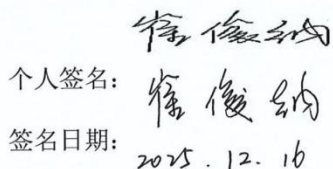 徐俊纳
个人签名：徐俊纳
签名日期：2025.12.16